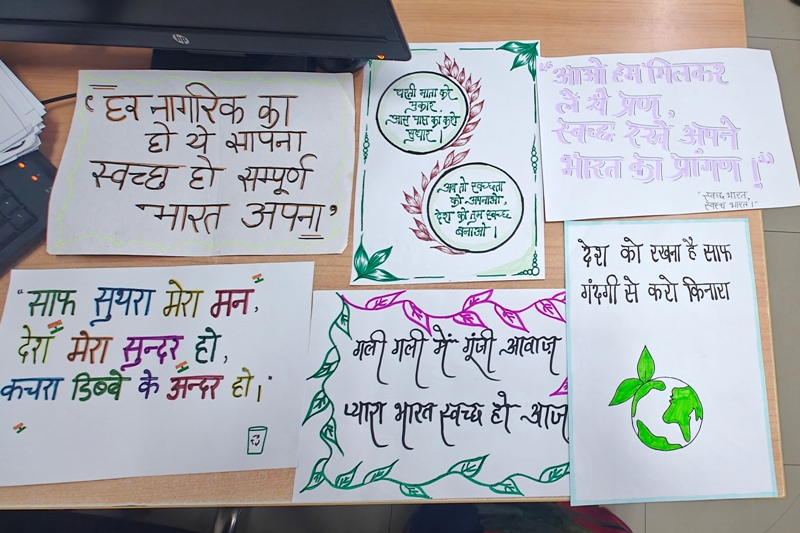 hp
"हर नागरिक का
हो ये सापना
स्वच्छ हो सम्पूर्ण
भारत अपना"
धरती माता की
पुकार,
आस पास का करो
सुधार।
अब तो स्वच्छता
को अपनाओ,
देश को तुम स्वच्छ
बनाओ।
"आओ हम मिलकर
लें ये प्रण,
स्वच्छ रखे अपने
भारत का प्रांगण!"
"स्वच्छ भारत,
स्वस्थ भारत।"
"साफ सुथरा मेरा मन,
देश मेरा सुन्दर हो,
कचरा डिब्बे के अन्दर हो।"
गली गली में गूंजी आवाज
प्यारा भारत स्वच्छ हो आज
देश को रखना है साफ
गंदगी से करो किनारा